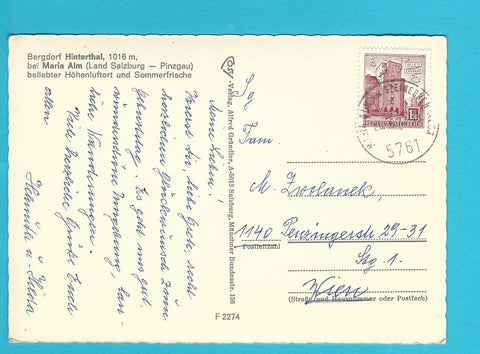 Bergdorf Hinterthal, 1016 m,
bei Maria Alm (Land Salzburg — Pinzgau)
beliebter Höhenluftort und Sommerfrische
Meine Lieben!
Zuerst dir, liebe Gerti, recht
herzlichen Glückwunsch zum
Geburtstag. Es geht uns gut,
wunderschöne Umgebung, herr-
liche Wanderungen.
Viele herzliche Grüße Euch
allen
Helmuth u.
Verlag Alfred Gründler, A-5013 Salzburg, Münchner Bundesstr. 156
Fam.
M. Zwolanek
1140 Penzingerstr 29-31
Stg 1.
Wien
(Postleitzahl)
(Straße und Hausnummer oder Postfach)
F 2274
REPUBLIK ÖSTERREICH
5761